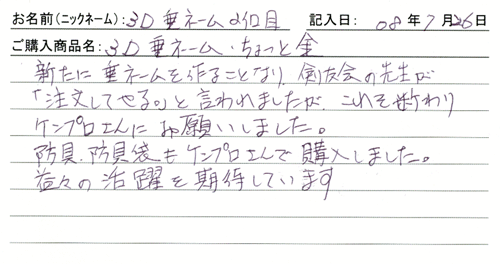 お名前(ニックネーム):3D垂ネーム2個目 記入日: 08年7月26日
ご購入商品名:3D垂ネーム・ちょっと金
新たに垂ネームを作ることなり、剣友会の先生が
「注文してやる。」と言われましたが、これを断わり
ケンプロさんにお願いしました。
防具、防具袋もケンプロさんで購入しました。
益々の活躍を期待しています